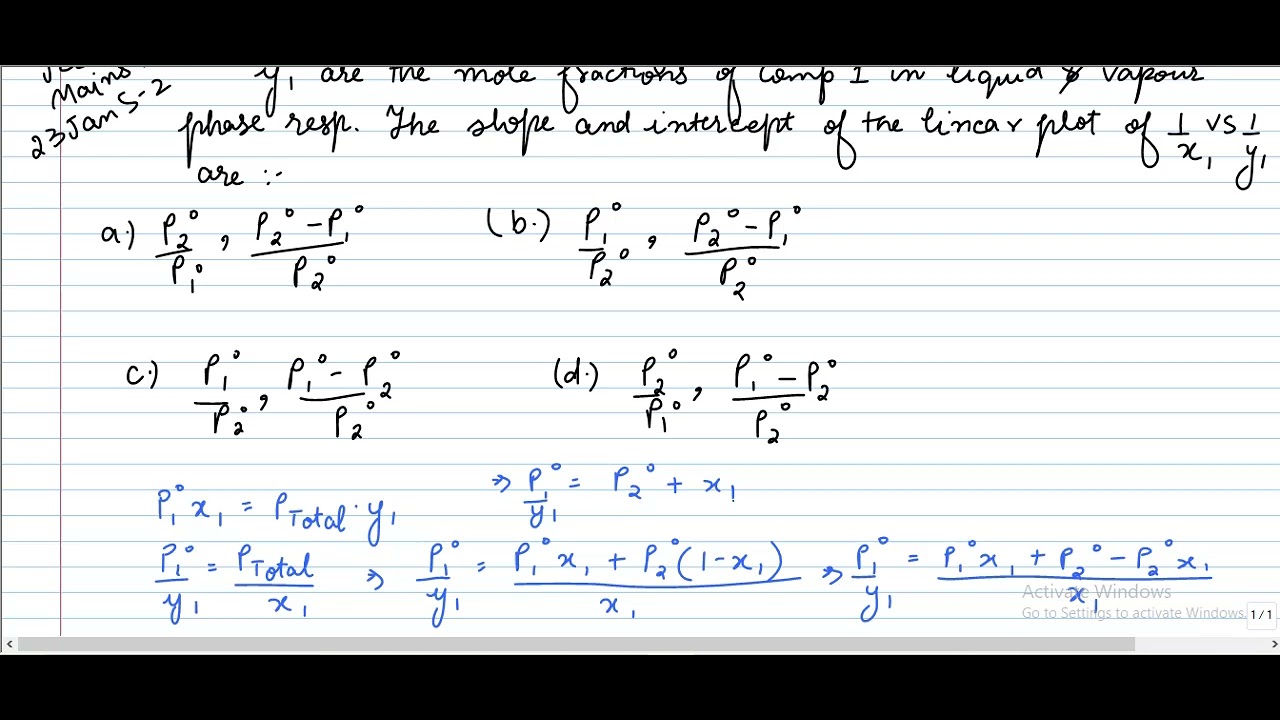 Mains
23 Jan S-2
y₁ are the mole fractions of comp 1 in liquid & vapour
phase resp. The slope and intercept of the linear plot of 1/x₁ vs 1/y₁
are :-
a.) P₂°/P₁° , (P₂° - P₁°)/P₂° (b.) P₁°/P₂° , (P₂° - P₁°)/P₂°
c.) P₁°/P₂° , (P₁° - P₂°)/P₂° (d.) P₂°/P₁° , (P₁° - P₂°)/P₂°
P₁° x₁ = P_Total · y₁ ⇒ P₁°/y₁ = P₂° + x₁
P₁°/y₁ = P_Total/x₁ ⇒ P₁°/y₁ = (P₁° x₁ + P₂° (1 - x₁))/x₁ ⇒ P₁°/y₁ = (P₁° x₁ + P₂° - P₂° x₁)/x₁
Activate Windows
Go to Settings to activate Windows.
1/1